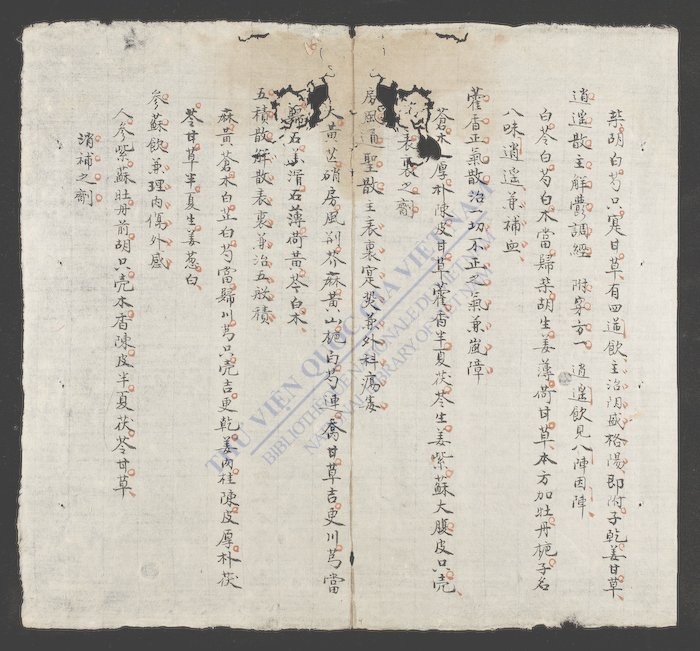 柴胡白芍只寔甘草有四逆飲主治陰盛格陽即附子乾姜甘草
逍遙散主觧鬱調經 附案方一 逍遙飲見八陣因陣
白苓白芍白木當歸柴胡生姜薄荷甘草本方加牡丹梔子名
八味逍遙兼補血
藿香正氣散治一切不正之氣兼嵐障
蒼木厚朴陳皮甘草藿香半夏茯苓生姜紫蘇大腹皮只壳
表裏之劑
房風通聖散主表裏寔兼外科瘍毒
大黃芒硝房風荊芥麻黃山梔白芍連喬甘草吉更川芎當
歸石羔滑石薄荷黃芩白木
五積散觧散表裏兼治五般積
麻黃蒼木白芷白芍當歸川芎只壳吉更乾姜肉桂陳皮厚朴茯
苓甘草半夏生姜葱白
參蘇飲兼理內傷外感
人參紫蘇牡丹前胡只壳木香陳皮半夏茯苓甘草
消補之劑
THƯ VIỆN QUỐC GIA VIỆT NAM
BIBLIOTHÈQUE NATIONALE DU VIETNAM
NATIONAL LIBRARY OF VIETNAM